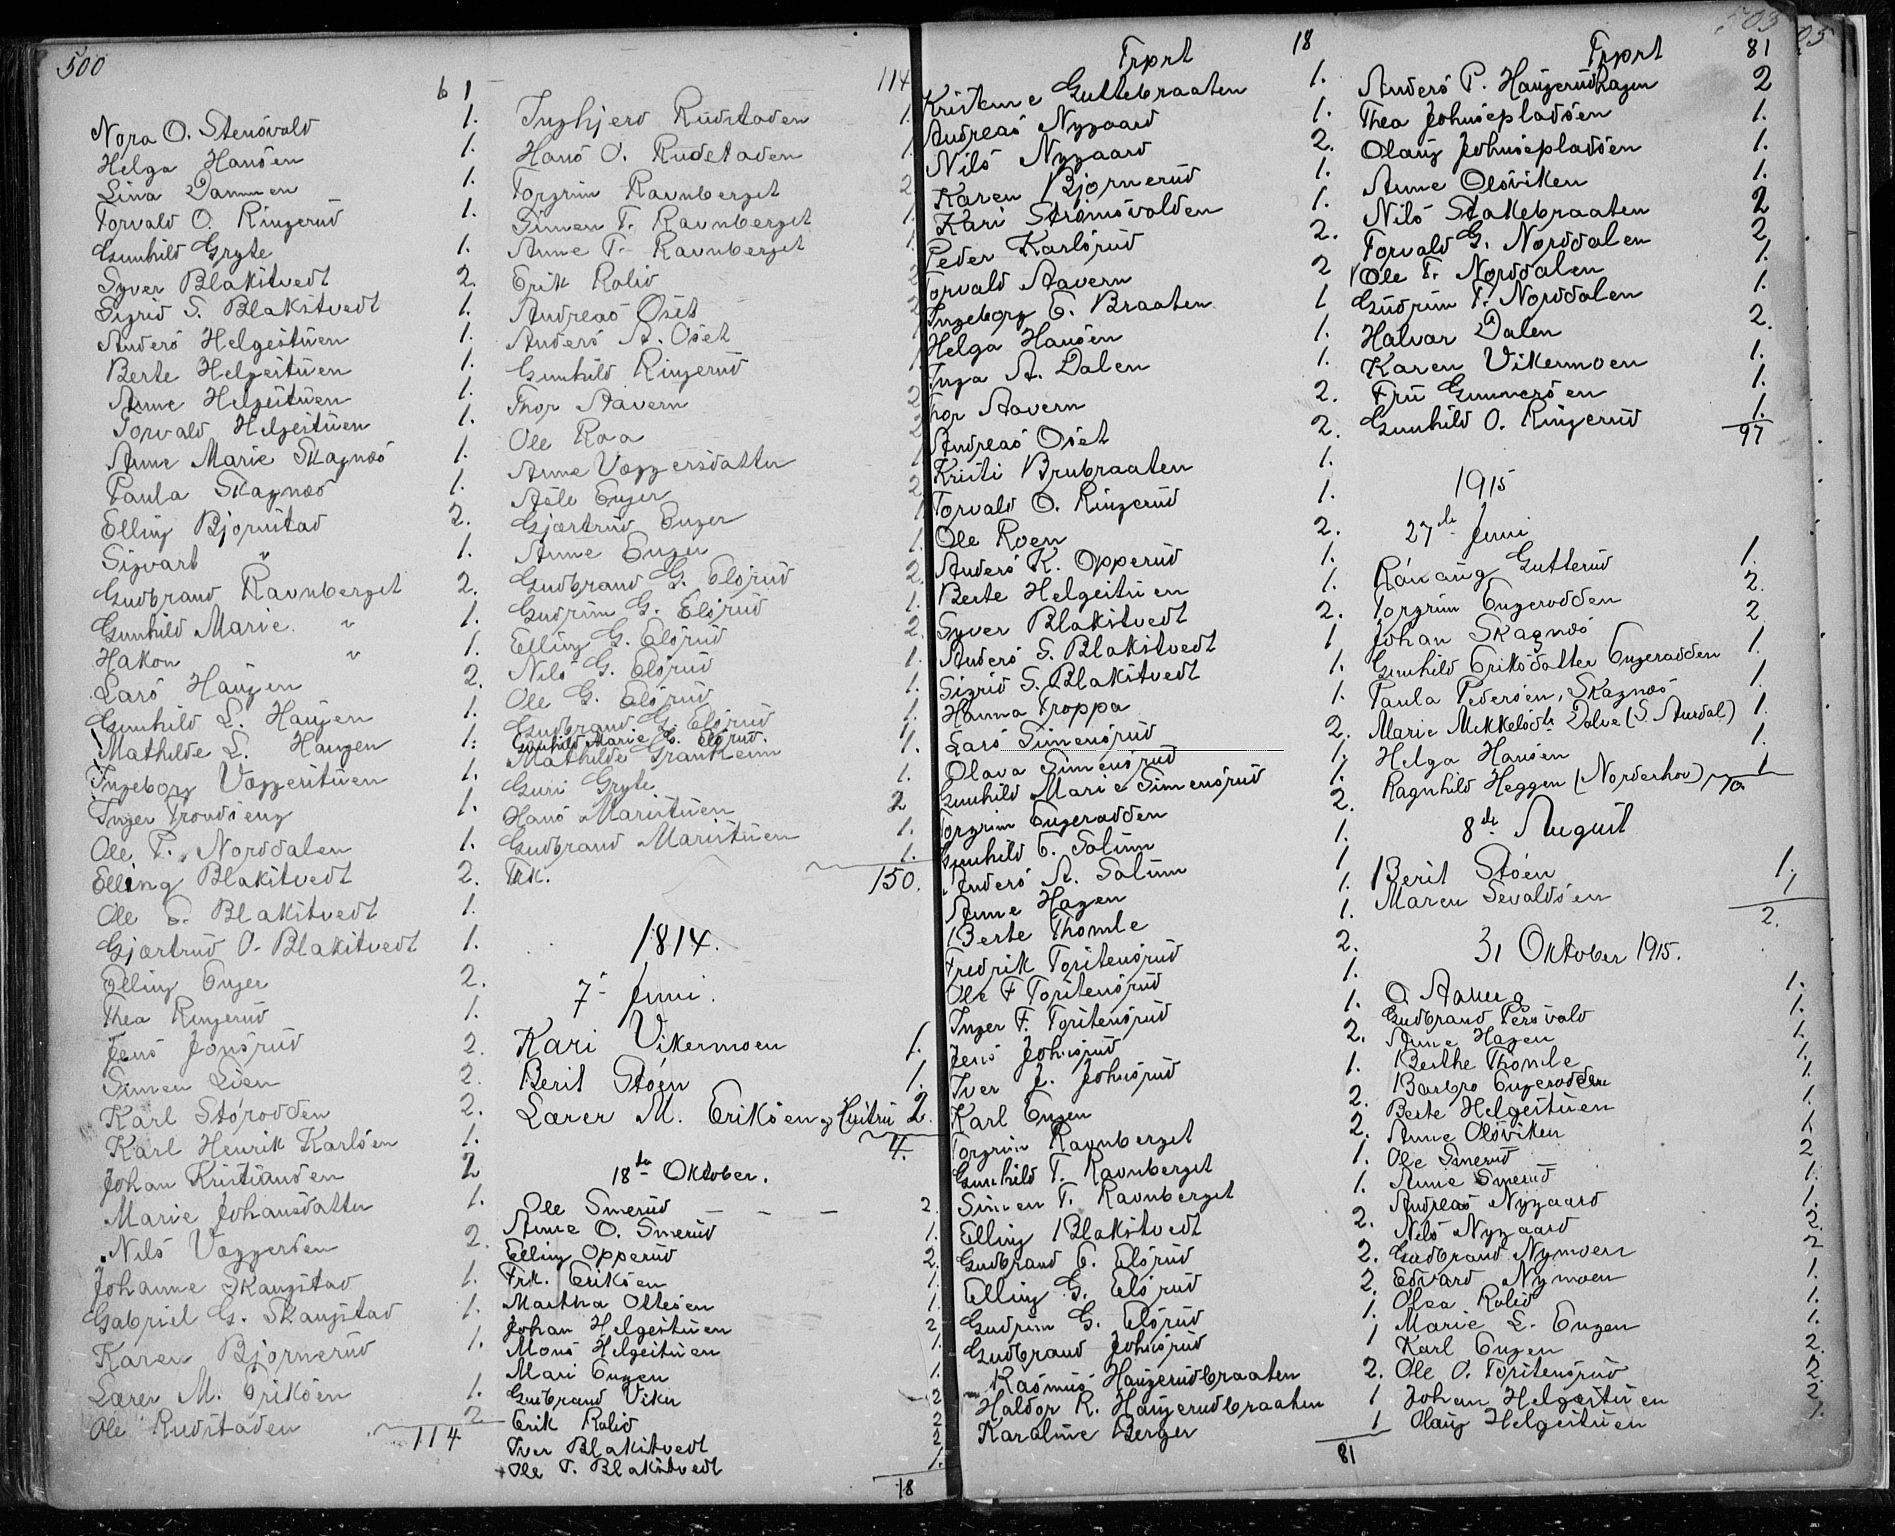 500
61
Nora O. Stensvald 1.
Helga Hansen 1.
Lina Dammen 1.
Torvald O. Ringerud 1.
Gunhild Gryte 1.
Syver Blakstvedt 2.
Sigrid S. Blakstvedt 1.
Anders Helgestuen 1.
Berte Helgestuen 1.
Anne Helgestuen 1.
Torvald Helgestuen 1.
Anne Marie Skagnæs 1.
Paula Skagnæs 1.
Elling Bjørnstad 2.
Sigvart " 1.
Gudbrand Ravnberget 2.
Gunhild Marie " 1.
Hakon " 1.
Lars Haugen 2.
Gunhild L. Haugen 1.
Mathilde L. Haugen 1.
Ingeborg Væggestuen 1.
Inger Trondseng 1.
Ole T. Norddalen 1.
Elling Blakstvedt 2.
Ole E. Blakstvedt 1.
Gjærtrud O. Blakstvedt 1.
Elling Enger 2.
Thea Ringerud 1.
Jens Jonsrud 2.
Simen Lien 2.
Karl Størodden 2.
Karl Henrik Karlsen 1.
Johan Kristiansen 2
Marie Johansdatter 1.
Nils Væggersen 2.
Johanne Skaugstad 1.
Gabriel G. Skaugstad 1.
Karen Bjørnerud 1.
Lærer M. Eriksen 1.
Ole Rudstaden 2
114
114
Ingbjerd Rudstaden 1.
Hans O. Rudstaden 1.
Torgrim Ravnberget 2
Simen T. Ravnberget 1.
Anne T. Ravnberget 1.
Erik Rolid 2
Andreas Oset 2
Anders A. Oset 1
Gunhild Ringerud 1
Thor Aavern 2
Ole Roa 2
Anne Væggersdatter 1
Asle Enger 2
Gjærtrud Enger 1
Anne Enger 1.
Gudbrand G. Elsrud 2.
Gudrun G. Elsrud 1.
Elling G. Elsrud 2.
Nils G. Elsrud 1.
Ole G. Elsrud 1.
Gudbrand G. Elsrud 1.
Gunhild Marie G. Elsrud. 1.
Mathilde Granheim
Guri Gryte 1.
Hans Maristuen 2
Gudbrand Maristuen 1.
Frk. 1.
150.
1814.
7- Juni.
Kari Vikermoen 1.
Berit Støen 1.
Lærer M. Eriksen og Hustru 2.
4.
18de Oktober.
Ole Smerud 2.
Anne O. Smerud 1.
Elling Opperud 2.
Frk. Eriksen 1.
Martha Ottesen 1.
Johan Helgestuen 2
Mons Helgestuen 1.
Mari Engen 1.
Gudbrand Viker 2
Erik Rolid 2
Iver Blakstvedt 2.
Ole T. Blakstvedt 1.
18
Trprt 18
Kristense Guttebraaten 1.
Andreas Nygaard 1.
Nils Nygaard 2.
Karen Bjørnerud 1.
Kari Strømsvolden 1.
Peder Karlsrud 2.
Torvald Aavern 2
Ingeborg E. Braaten 1
Helga Hansen 1.
Inga A. Dalen 1.
Thor Aavern 2.
Andreas Oset 2.
Kristi Brubraaten 1.
Torvald O. Ringerud 1.
Ole Roen 2.
Anders K. Opperud 1.
Berte Helgestuen 1.
Syver Blakstvedt 2.
Anders S. Blakstvedt 1
Sigrid S. Blakstvedt 1.
Hanna Troppa 1.
Lars Simensrud 2.
Olava Simensrud 1.
Gunhild Marie Simensrud 1.
Torgrim Engerodden 2.
Gunhild E. Solum 1.
Anders A. Solum 1
Anne Hagen 1.
Berte Thomle 1.
Fredrik Torstensrud 2.
Ole F Torstensrud 1.
Inger F. Torstensrud 1.
Jens Johnsrud 2.
Iver J. Johnsrud 1.
Karl Engen 2.
Torgrim Ravnberget 2.
Gunhild T. Ravnberget 1.
Simen T. Ravnberget 1.
Elling Blakstvedt 2.
Gudbrand E. Elsrud 2.
Elling G. Elsrud 2.
Gudrun G. Elsrud 1.
Gudbrand Johnsrud 1
Rasmus Haugerudbraaten 2.
Haldor R. Haugerudbraaten 1
Karoline Berger 1
81
503
Trprt 81
Anders P. Haugerudhagen 2
Thea Johnsepladsen 1.
Olaug Johnsepladsen 1.
Anne Olsviken 1.
Nils Stakebraaten 2
Torvald G. Norddalen 2
Ole T. Norddalen 1.
Gudrun T. Norddalen 1.
Halvar Dalen 2.
Karen Vikermoen 1.
Fru Gunnersen 1.
Gunhild O. Ringerud 1.
97
1915
27de Juni
Rønnaug Gutterud 1.
Torgrim Engerodden 2.
Johan Skagnæs 2
Gunhild Eriksdatter Engerodden 1.
Paula Pedersen, Skagnæs 1.
Marie Mikkelsdtr Dalve (S. Aurdal) 1.
Helga Hansen 1.
Ragnhild Heggen (Norderhov) 1
10
8de August
Berit Støen 1.
Maren Sevaldsen 1
2.
31 Oktober 1915.
Gudbrand Persvold 1.
Anne Hagen 1.
Berthe Thomle 1.
Barbro Engerodden 1.
Berte Helgestuen 1.
Anne Olsviken 1.
Ole Smerud 2
Anne Smerud 1.
Andreas Nygaard 1.
Nils Nygaard 2.
Gudbrand Nymoen 2
Edvard Nymoen 1.
Olea Rolid 1.
Marie L. Engen 1.
Karl Engen 2.
Ole O. Torstensrud 2.
Johan Helgestuen 2
Olaug Helgestuen 1.